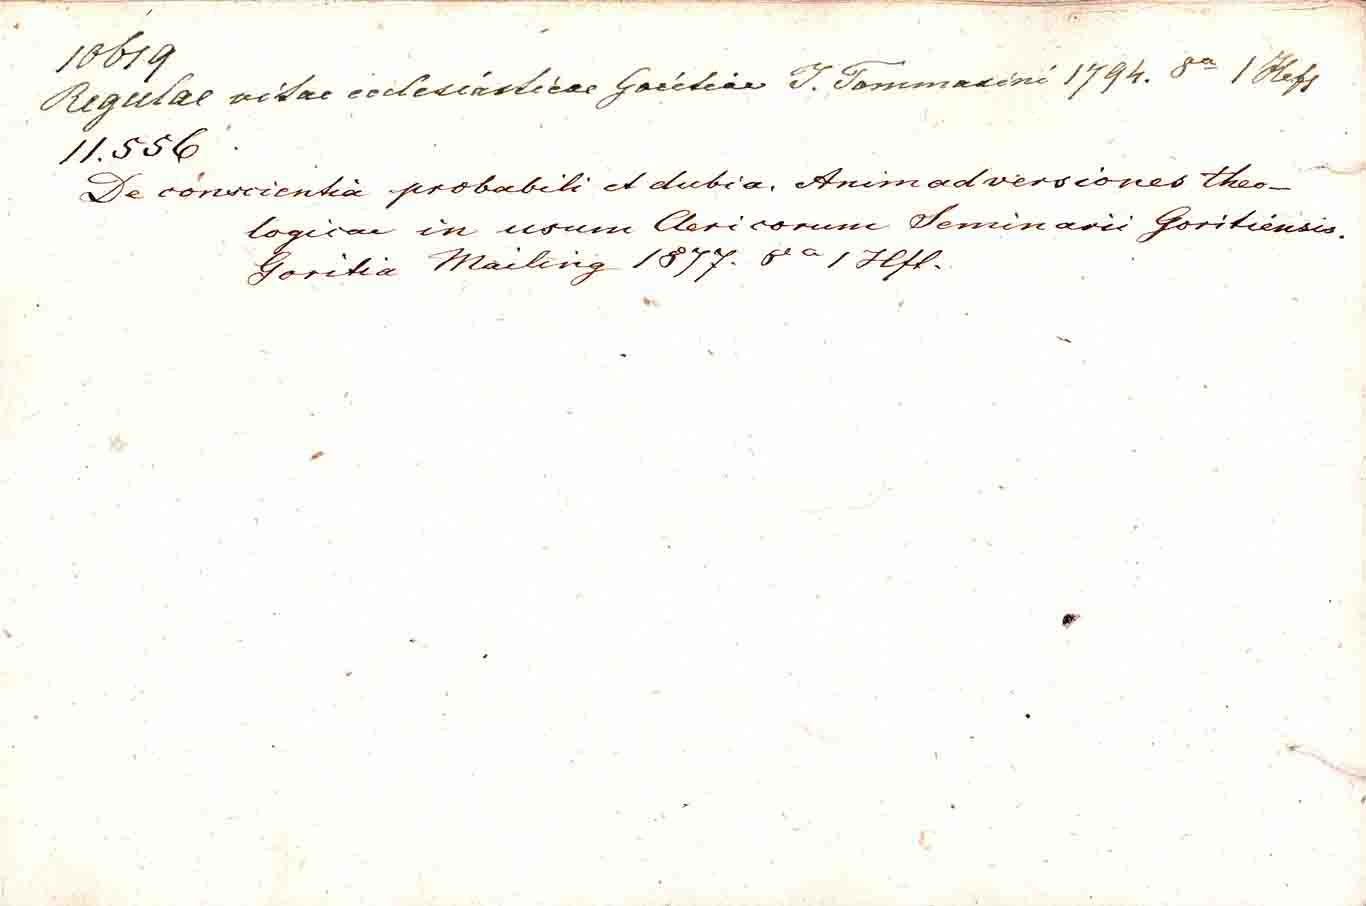 10619
Regulae vitae ecclesiasticae Goritiae J. Tommasini 1794. 8a 1 Heft
11.556
De conscientia probabili et dubia. Animadversiones theo-
logicae in usum Clericorum Seminarii Goritiensis.
Goritia Mailing 1877. 8a 1 Hft.